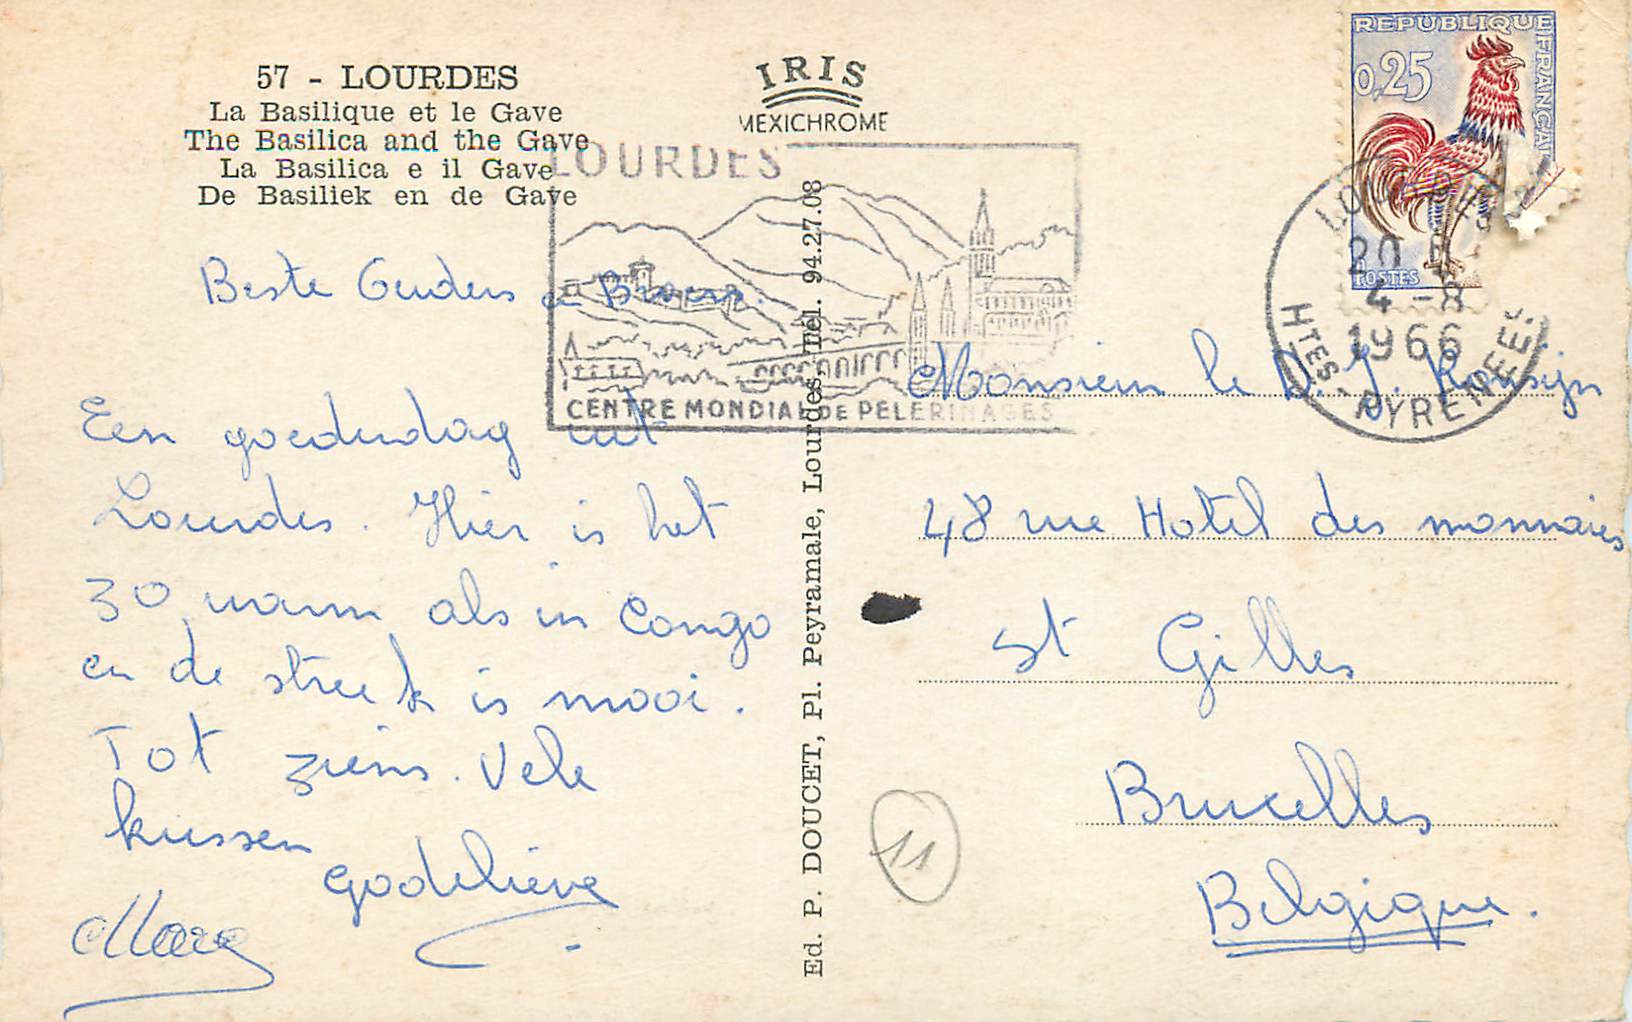 57 - LOURDES
La Basilique et le Gave
The Basilica and the Gave
La Basilica e il Gave
De Basiliek en de Gave
IRIS
MEXICHROME
LOURDES
CENTRE MONDIAL DE PELERINAGES
REPUBLIQUE FRANÇAI
0,25
POSTES
LOURDES
20
4 -8
1966
HTES-PYRENEES
Beste Ouders en Broers.
Een goedendag uit
Lourdes. Hier is het
zo warm als in Congo
en de streek is mooi.
Tot ziens. Vele
kussen
Godelieve
Marc
Ed. P. DOUCET, Pl. Peyramale, Lourdes, Tel. 94.27.08
Monsieur le D. J.
48 rue Hotel des monnaies
St Gilles
Bruxelles
Belgique.
11